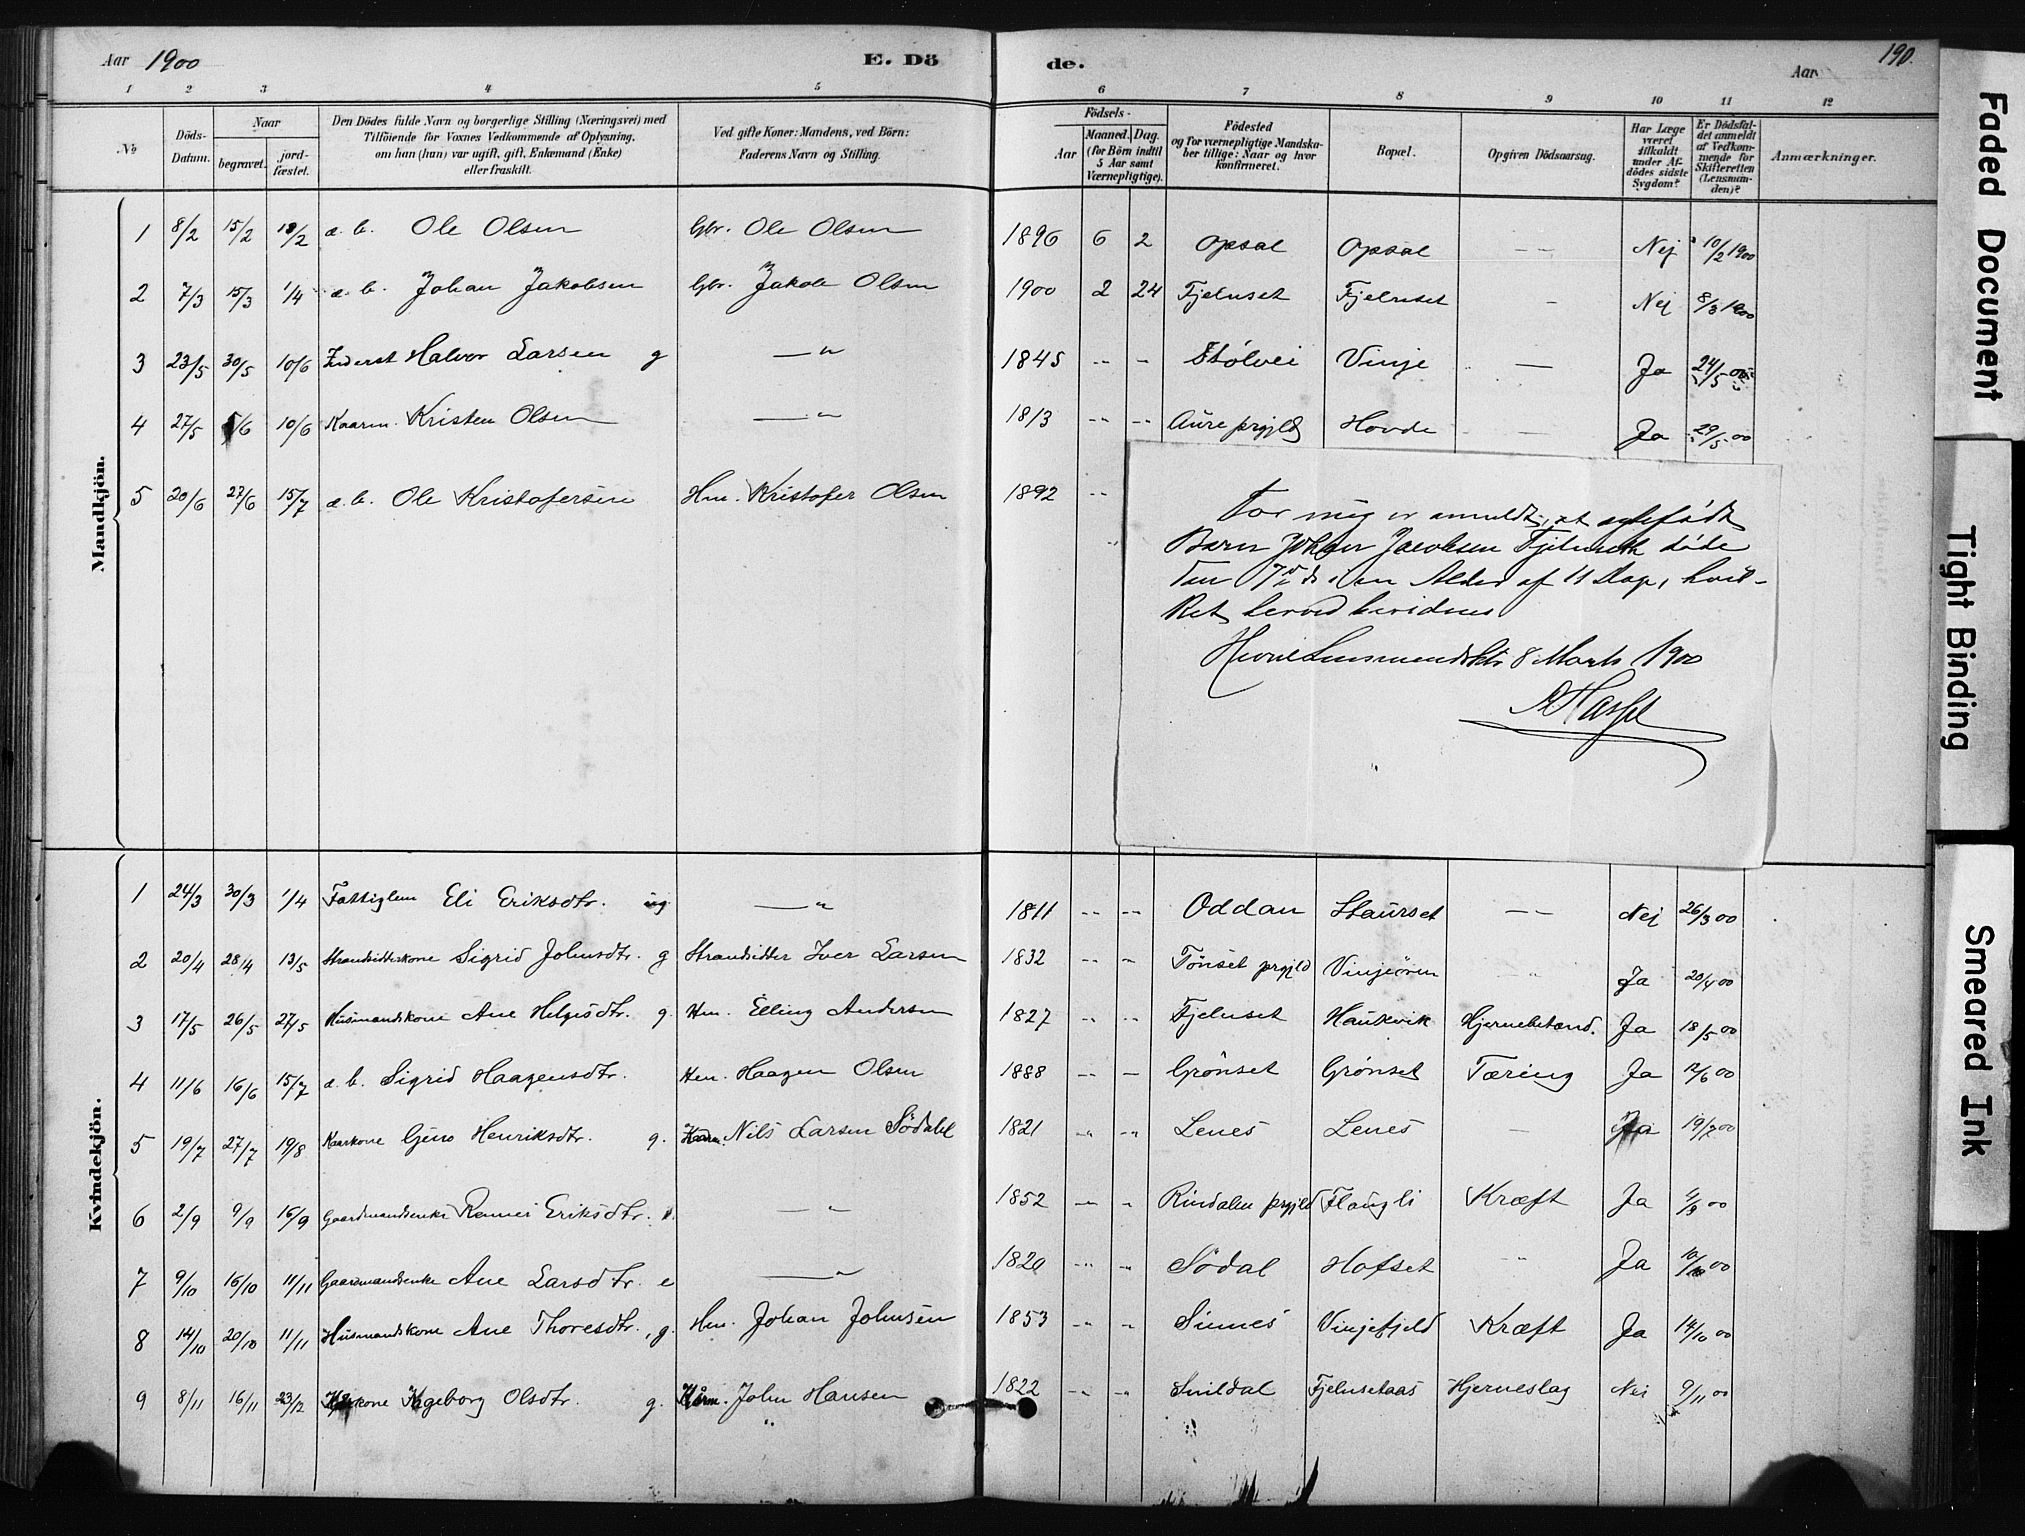 Aar 1900 E. Dö de. Aar 190.
1 2 3 4 5 6 7 8 9 10 11 12
No Döds-Datum. Naar begravet. jordfæstet. Den Dödes fulde Navn og borgerlige Stilling (Næringsvei) med Tilföiende for Voxnes Vedkommende af Oplysning, om han (hun) var ugift, gift, Enkemand (Enke) eller fraskilt. Ved gifte Koner: Mandens, ved Börn: Faderens Navn og Stilling. Födsels- Aar Maaned. Dag. (for Börn indtil 5 Aar samt Værnepligtige). Födested og for værnepligtige Mandskaber tillige: Naar og hvor konfirmeret. Bopæl. Opgiven Dödsaarsag. Har Læge været tilkaldt under Afdödes sidste Sygdom? Er Dödsfaldet anmeldt af Vedkommende for Skifteretten (Lensmanden)? Anmærkninger.
Mandkjön.
1 8/2 15/2 18/2 æ. b. Ole Olsen Gbr. Ole Olsen 1896 6 2 Opsal Opsal -- Nej 10/2 1900
2 7/3 15/3 1/4 æ. b. Johan Jakobsen Gbr. Jakob Olsen 1900 2 24 Fjelnset Fjelnset - Nej 8/3 1900
3 23/5 30/5 10/6 Inderst Halvor Larsen g —" 1845 -- - Stølvei Vinje — Ja 24/5 00
4 27/5 5/6 10/6 Kaarm. Kristen Olsen —" 1813 -- -- Aure prgjld Hovde Ja 29/5 00
5 20/6 27/6 15/7 æ. b. Ole Kristofersen Hm. Kristofer Olsen 1892 --
For mig er anmeldt, at ægtefødt
Barn Johan Jacobsen Fjelnseth døde
den 7de ds i en Alder af 11 Dage, hvil-
ket herved bevidnes
Hevne Lensmandsktr 8 Marts 1900
Hassel
Kvindekjön.
1 24/3 30/3 1/4 Fattiglem Eli Eriksdtr. ug —" 1811 -- -- Oddan Staurset -- Nej 26/3 00
2 20/4 28/4 13/5 Strandsidderkone Sigrid Johnsdtr. g Strandsidder Iver Larsen 1832 -- - Tönset prgjld Vinjeören Ja 20/4 00
3 17/5 26/5 27/5 Husmandskone Ane Helgesdtr. g. Hm. Elling Andersen 1827 -- -- Fjelnset Haukvik Hjernebetænd. Ja 18/5 00
4 11/6 16/6 15/7 æ. b. Sigrid Haagensdtr. Hm. Haagen Olsen 1888 -- - Grönset Grönset Tæring Ja 12/6 00
5 19/7 27/7 19/8 Kaarkone Henriksdtr. g. Kaarm. Nils Larsen Södahl 1821 -- -- Lenes Lenes - Ja 19/7 00
6 2/9 9/9 16/9 Gaardmandsenke Eriksdtr. -- 1852 -- - Rindalen prgjld Flaugli Kræft Ja 00
7 9/10 16/10 11/11 Gaardmandsenke Ane Larsdtr. e —" 1820 -- - Södal Hofset Ja 00
8 14/10 20/10 11/11 Husmandskone Ane Thoresdtr., g. Hm. Johan Johnsen 1853 -- - Sinnes Vinjefjeld Kræft Ja 14/10 00
9 8/11 16/11 23/12 Ingeborg Olsdtr. g. Kårm. John Hansen 1822 -- - Snildal Fjelnsetaas Hjerneslag Nei 9/11 00
Faded Document
Tight Binding
Smeared Ink